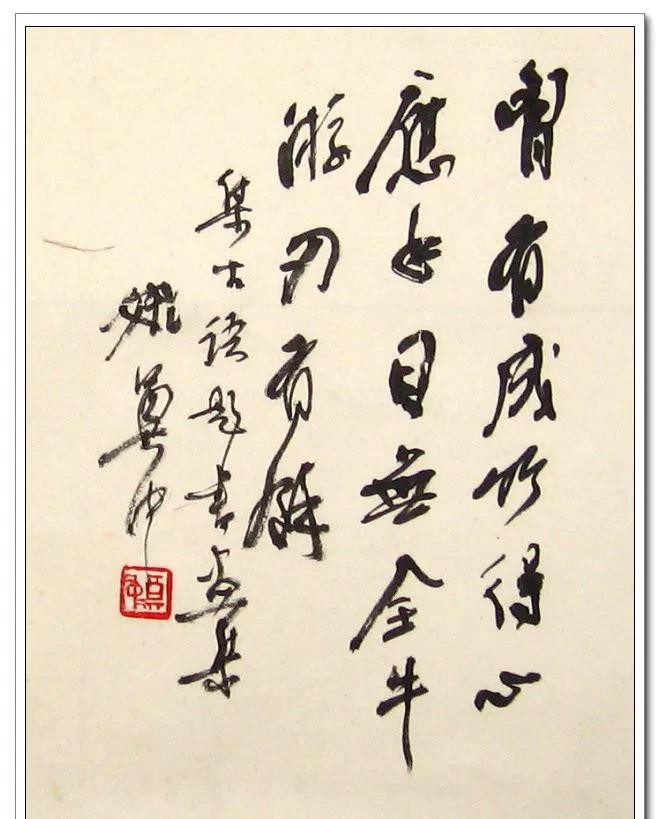 胷有成竹得心
應手目無全牛
游刃有餘
集古語題書画集
姚奠中